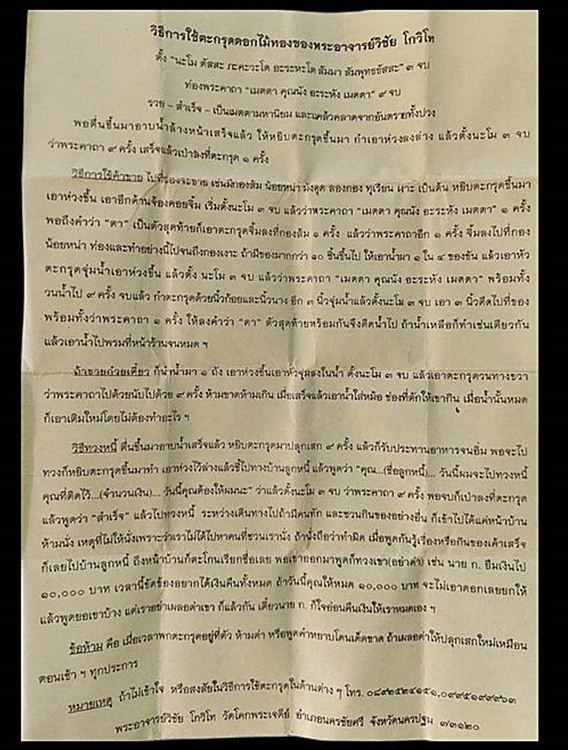 วิธีการใช้ตะกรุดดอกไม้ทองของพระอาจารย์วิชัย โกวิโท
ตั้ง "นะโม ตัสสะ ภะคะวะโต อะระหะโต สัมมา สัมพุทธธัสสะ" ๓ จบ
ท่องพระคาถา "เมตตา คุณนัง อะระหัง เมตตา" ๙ จบ
รวย – สำเร็จ – เป็นเมตตามหานิยม และแคล้วคลาดจากอันตรายทั้งปวง
พอตื่นขึ้นมาอาบน้ำล้างหน้าเสร็จแล้ว ให้หยิบตะกรุดขึ้นมา กำเอาห่วงลงล่าง แล้วตั้งนะโม ๓ จบ
ว่าพระคาถา ๙ ครั้ง เสร็จแล้วเป่าลงที่ตะกรุด ๑ ครั้ง
วิธีการใช้ค้าขาย ไปที่ของจะขาย เช่นมีกองส้ม น้อยหน่า มังคุด ลองกอง ทุเรียน เงาะ เป็นต้น หยิบตะกรุดขึ้นมา
เอาห่วงขึ้น เอาอีกด้านจ้องคอยจิ้ม เริ่มตั้งนะโม ๓ จบ แล้วว่าพระคาถา "เมตตา คุณนัง อะระหัง เมตตา" ๑ ครั้ง
พอถึงคำว่า "ตา" เป็นตัวสุดท้ายก็เอาตะกรุดจิ้มลงที่กองส้ม ๑ ครั้ง แล้วว่าพระคาถาอีก ๑ ครั้ง จิ้มลงไปที่กอง
น้อยหน่า ท่องและทำอย่างนี้ไปจนถึงกองเงาะ ถ้ามีของมากกว่า ๑๐ ชิ้นขึ้นไป ให้เอาน้ำมา ๑ ใน ๔ ของขัน แล้วเอาหัว
ตะกรุดจุ่มน้ำเอาห่วงขึ้น แล้วตั้ง นะโม ๓ จบ แล้วว่าพระคาถา "เมตตา คุณนัง อะระหัง เมตตา" พร้อมทั้ง
วนน้ำไป ๙ ครั้ง จบแล้ว กำตะกรุดด้วยนิ้วก้อยและนิ้วนาง อีก ๓ นิ้วจุ่มน้ำแล้วตั้งนะโม ๓ จบ เอา ๓ นิ้วดีดไปที่ของ
พร้อมทั้งว่าพระคาถา ๑ ครั้ง ให้ลงคำว่า "ตา" ตัวสุดท้ายพร้อมกันจึงดีดน้ำไป ถ้าน้ำเหลือก็ทำเช่นเดียวกัน
แล้วเอาน้ำไปพรมที่หน้าร้านจนหมด ฯ
ถ้าขายก๋วยเตี๋ยว ก็นำน้ำมา ๑ ถัง เอาห่วงขึ้นเอาหัวจุ่มลงในน้ำ ตั้งนะโม ๓ จบ แล้วเอาตะกรุดวนทางขวา
ว่าพระคาถาไปด้วยนับไปด้วย ๙ ครั้ง ห้ามขาดห้ามเกิน เมื่อเสร็จแล้วเอาน้ำใส่หม้อ ช่องที่ตักให้เขากิน เมื่อน้ำนั้นหมด
ก็เอาเติมใหม่โดยไม่ต้องทำอะไร ฯ
วิธีทวงหนี้ ตื่นขึ้นมาอาบน้ำเสร็จแล้ว หยิบตะกรุดมาปลุกเสก ๙ ครั้ง แล้วก็รับประทานอาหารจนอิ่ม พอจะไป
ทวงก็หยิบตะกรุดขึ้นมาทำ เอาห่วงไว้ล่างแล้วชี้ไปทางบ้านลูกหนี้ แล้วพูดว่า "คุณ...(ชื่อลูกหนี้)... วันนี้ผมจะไปทวงหนี้
คุณที่ติดไว้...(จำนวนเงิน)... วันนี้คุณต้องให้ผมนะ" ว่าแล้วตั้งนะโม ๓ จบ ว่าพระคาถา ๙ ครั้ง พอจบก็เป่าลงที่ตะกรุด
แล้วพูดว่า "สำเร็จ" แล้วไปทวงหนี้ ระหว่างเดินทางไปถ้ามีคนทัก และชวนกินของอย่างอื่น ก็เข้าไปได้แค่หน้าบ้าน
ห้ามนั่ง เหตุที่ไม่ให้นั่งเพราะว่าเราไม่ได้ไปหาคนที่ชวนเรานั่ง ถ้านั่งถือว่าทำผิด เมื่อพูดกันรู้เรื่องหรือกินของเค้าเสร็จ
ก็เลยไปบ้านลูกหนี้ ถึงหน้าบ้านก็ตะโกนเรียกชื่อเลย พอเขาออกมาพูดก็ทวงเขา(อย่าด่า) เช่น นาย ก. ยืมเงินไป
๑๐,๐๐๐ บาท เวลานี้ขัดข้องอยากได้เงินคืนทั้งหมด ถ้าวันนี้คุณให้หมด ๑๐,๐๐๐ บาท จะไม่เอาดอกเลยยกให้
แล้วพูดยอเขาบ้าง แต่เราอย่าเผลอด่าเขา ก็แล้วกัน เดี๋ยวนาย ก. ก็ใจอ่อนคืนเงินให้เราหมดเอง ฯ
ข้อห้าม คือ เมื่อเวลาพกตะกรุดอยู่ที่ตัว ห้ามด่า หรือพูดคำหยาบโดนเด็ดขาด ถ้าเผลอด่าให้ปลุกเสกใหม่เหมือน
ตอนเช้า ฯ ทุกประการ
หมายเหตุ ถ้าไม่เข้าใจ หรือสงสัยในวิธีการใช้ตะกรุดในด้านต่าง ๆ โทร. ๐๘๙๒๕๒๔๑๕๑,๐๙๙๕๑๙๙๙๖๓
พระอาจารย์วิชัย โกวิโท วัดโคกพระเจดีย์ อำเภอนครชัยศรี จังหวัดนครปฐม ๗๓๑๒๐